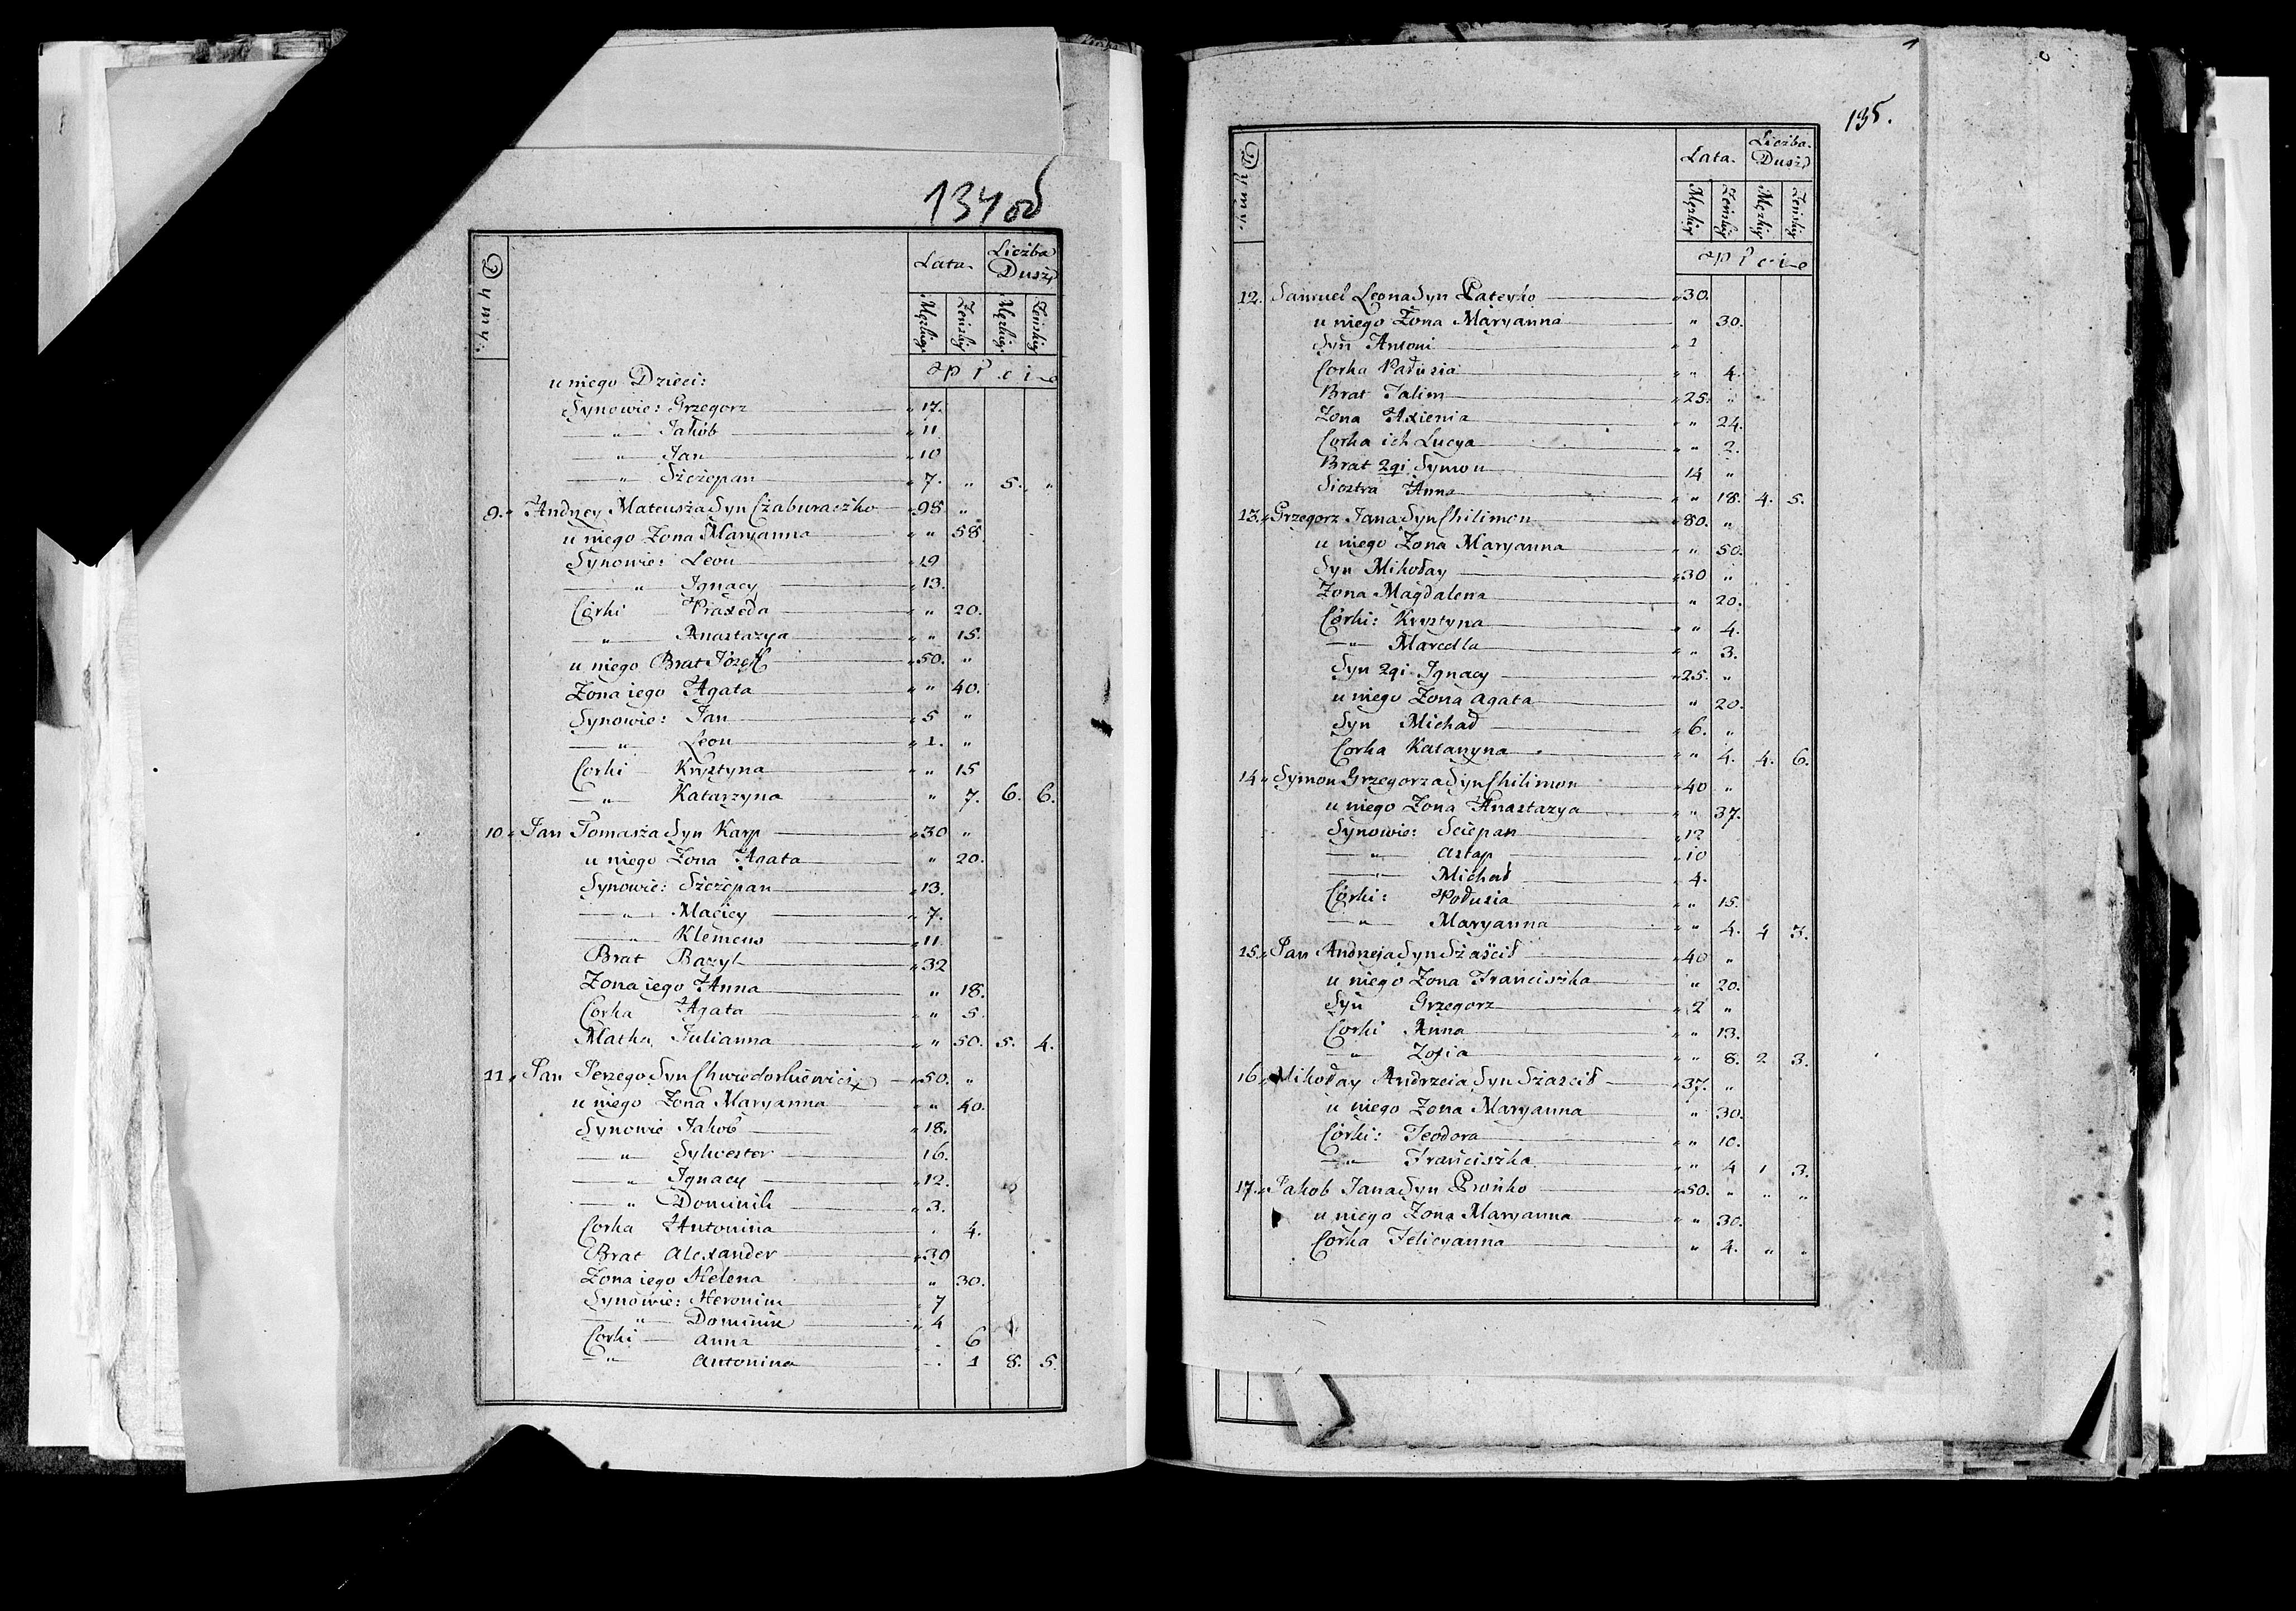 134 об
Dymy.
Lata
Liczba Dusz
Męzkiey
Zeńskiey
Męzkiey
Zeńskiey
Płcie
u niego Dzieci:
Synowie: Grzegorz „ 17.
—„— Jakób „ 11
—„— Jan „ 10
—„— Szczepan „ 7. „ 5. „
9. „ Andrzey Mateusza Syn Czaburaczko „ 98 „
u niego Zona Maryanna „ „ 58
Synowie: Leon „ 19
—„— Ignacy „ 13.
Córki Praxeda „ „ 20.
—„— Anastazya „ „ 15.
u niego Brat Józef „ 50. „
Zona iego Agata „ „ 40.
Synowie: Jan „ 5 „
—„— Leon „ 1. „
Corki Krystyna „ „ 15
—„— Katarzyna „ 7. 6. 6.
10 „ Jan Tomasza Syn Karp „ 30 „
u niego Zona Agata „ 20.
Synowie: Szczepan „ 13.
—„— Maciey „ 7.
—„— Klemens „ 11
Brat Bazyl „ 32
Zona iego Anna „ 18.
Corka Agata „ „ 5.
Matka Julianna „ „ 50. 5. 4.
11 „ Jan Jerzego Syn Chwiedorkiewicz „ 50. „
u niego Zona Maryanna „ „ 40.
Synowie Jakob „ 18.
—„— Sylwester 16.
—„— Ignacy „ 12.
—„— Dominik „ 3.
Corka Antonina . 4.
Brat Alexander „ 30
Zona iego Helena „ 30.
Synowie: Heronim „ 7
—„— Dominik „ 4
Corki — Anna . 6
—„— Antonina . 1 8. 5.
135.
Dymy.
Lata.
Liczba Dusz
Męzkiey
Zeńskiey
Męzkiey
Zeńskiey
Płcie
12. Samuel Leona Syn Pateyko „ 30.
u niego Zona Maryanna „ 30.
Syn Antoni „ 1
Corka Pałusia „ „ 4.
Brat Jalim „ 25. „
Zona Axienia „ „ 24.
Corka ich Lucya „ „ 2.
Brat 2gi Symon 14 „
Siostra Anna „ „ 18. 4. 5.
13. „ Grzegorz Jana Syn Chilimon „ 80. „
u niego Zona Maryanna „ „ 50.
Syn Mikołay „ 30 „
Zona Magdalena „ 20.
Córki: Krystyna „ „ 4.
—„— Marcella „ „ 3.
Syn 2gi Ignacy „ 25. „
u niego Zona Agata „ 20.
Syn Michał „ 6. „
Corka Katarzyna „ „ 4. 4. 6.
14 „ Symon Grzegorza Syn Chilimon „ 40 „
u niego Zona Anastazya „ „ 37.
Synowie: Sciepan „ 12
—„— Astap „ 10
—„— Michał „ 4.
Córki: Połusia „ „ 15.
—„— Maryanna „ „ 4. 4 3.
15. „ Jan Andrzeja Syn Szaścił „ 40 „
u niego Zona Franciszka „ 20.
Syn Grzegorz „ 2 „
Corki Anna „ „ 13.
—„— Zofia „ „ 8. 2 3.
16 „ Mikołay Andrzeia Syn Szascił „ 37. „
u niego Zona Maryanna „ 30.
Córki: Teodora „ „ 10.
—„— Franciszka „ „ 4 1 3.
17. „ Jakob Jana Syn Prońko „ 50. „ „ „
u niego Zona Maryanna „ „ 30.
Corka Felicyanna „ 4. „ „